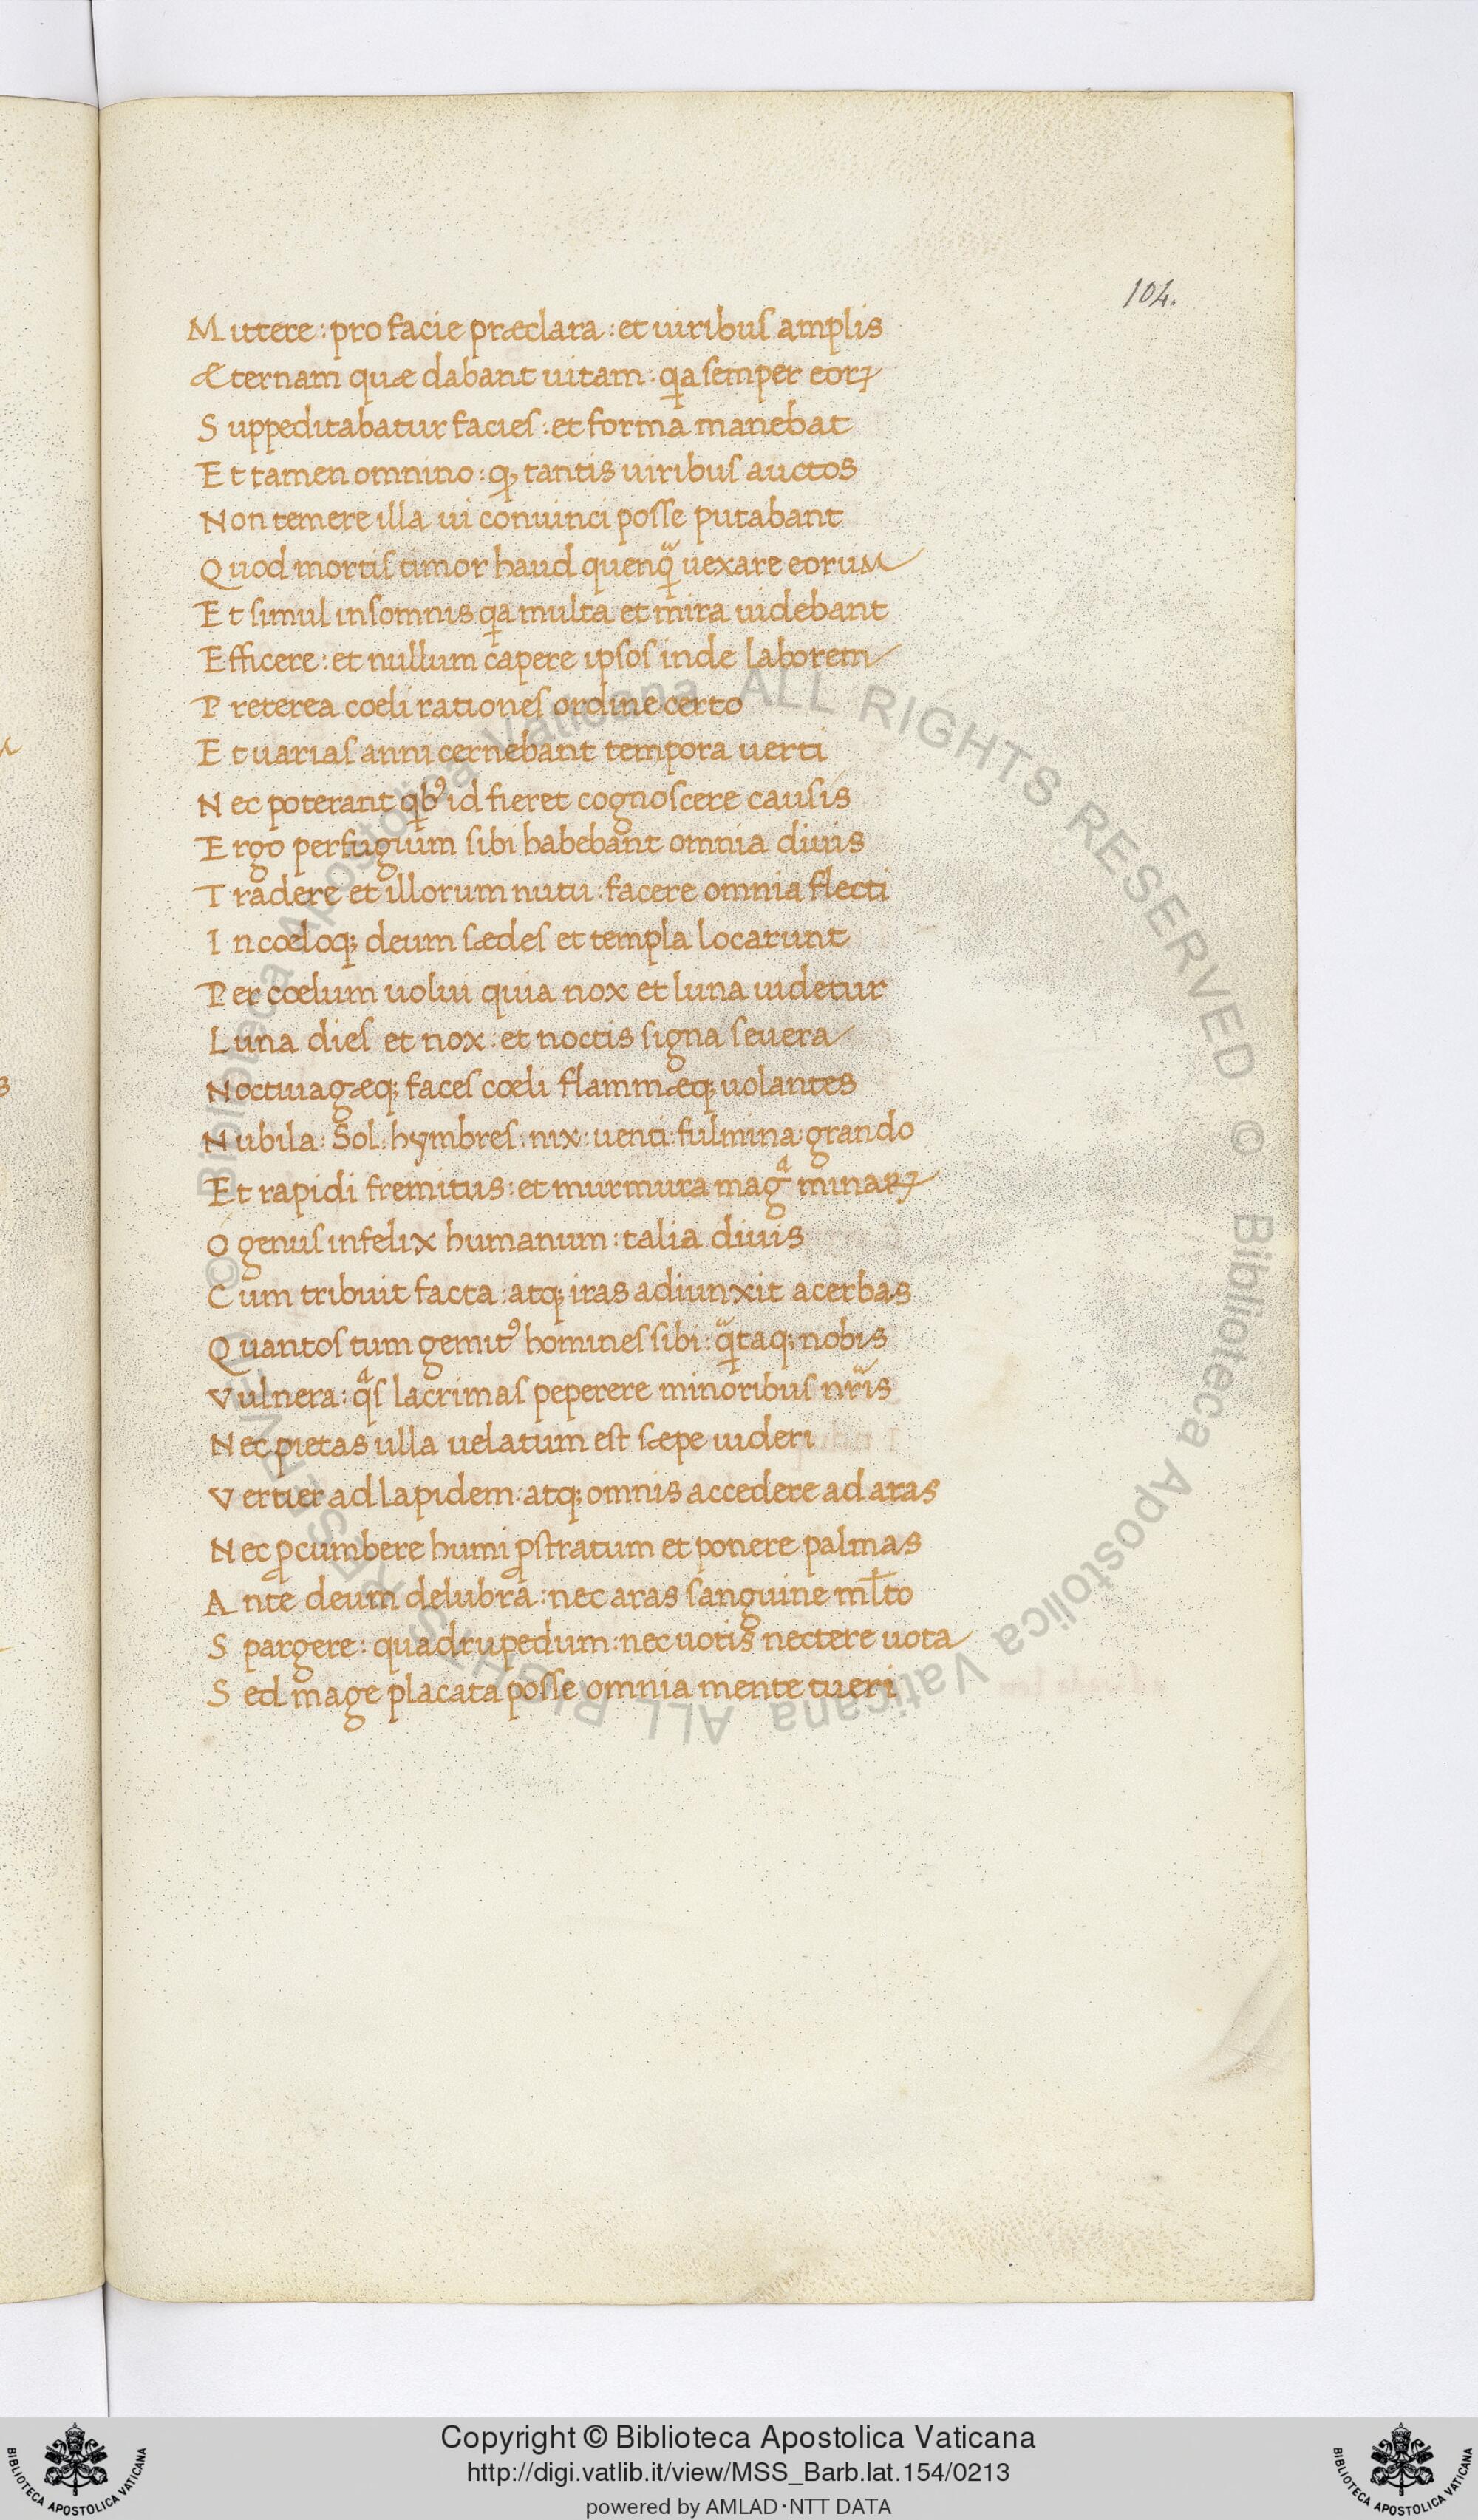 104.
Mittere : pro facie præclara : et uiribus amplis
Æternam quæ dabant uitam : qa semper eorꝝ
Suppeditabatur facies : et forma manebat
Et tamen omnino : qꝫ tantis uiribus auctos
Non temere illa ui conuinci posse putabant
Quod mortis timor haud quenq̈ uexare eorum
Et simul in somnis qa multa et mira uidebant
Efficere : et nullum capere ipsos inde laborem
Preterea coeli rationes ordine certo
Et uarias anni cernebant tempora uerti
Nec poterant qbꝰ id fieret cognoscere causis
Ergo perfugium sibi habebant omnia diuis
Tradere et illorum nutu : facere omnia flecti
In cœloqꝫ deum sædes et templa locarunt
Per cœlum uolui quia nox et luna uidetur
Luna dies et nox : et noctis signa seuera
Noctiuagæqꝫ faces cœli flammæqꝫ uolantes
Nubila : Sol : hymbres : nix : uenti : fulmina : grando
Et rapidi fremitus : et murmura magͣ minarꝝ
Ó genus infelix humanum : talia diuis
Cum tribuit facta : atqꝫ iras adiunxit acerbas
Quantos tum gemitꝰ homines sibi : q̈taqꝫ nobis
Vulnera : qͣs lacrimas peperere minoribus nr̄is
Nec pietas ulla uelatum est sæpe uideri
Vertier ad lapidem : atqꝫ omnis accedere ad aras
Nec ꝓcumbere humi ꝓstratum et ponere palmas
Ante deum delubra : nec aras sanguine ml̄to
Spargere : quadrupedum : nec uotis nectere uota
Sed mage placata posse omnia mente tueri
© Biblioteca Apostolica Vaticana ALL RIGHTS RESERVED
© Biblioteca Apostolica Vaticana ALL RIGHTS RESERVED
Copyright © Biblioteca Apostolica Vaticana
http://digi.vatlib.it/view/MSS_Barb.lat.154/0213
powered by AMLAD·NTT DATA
BIBLIOTECA APOSTOLICA VATICANA
BIBLIOTECA APOSTOLICA VATICANA